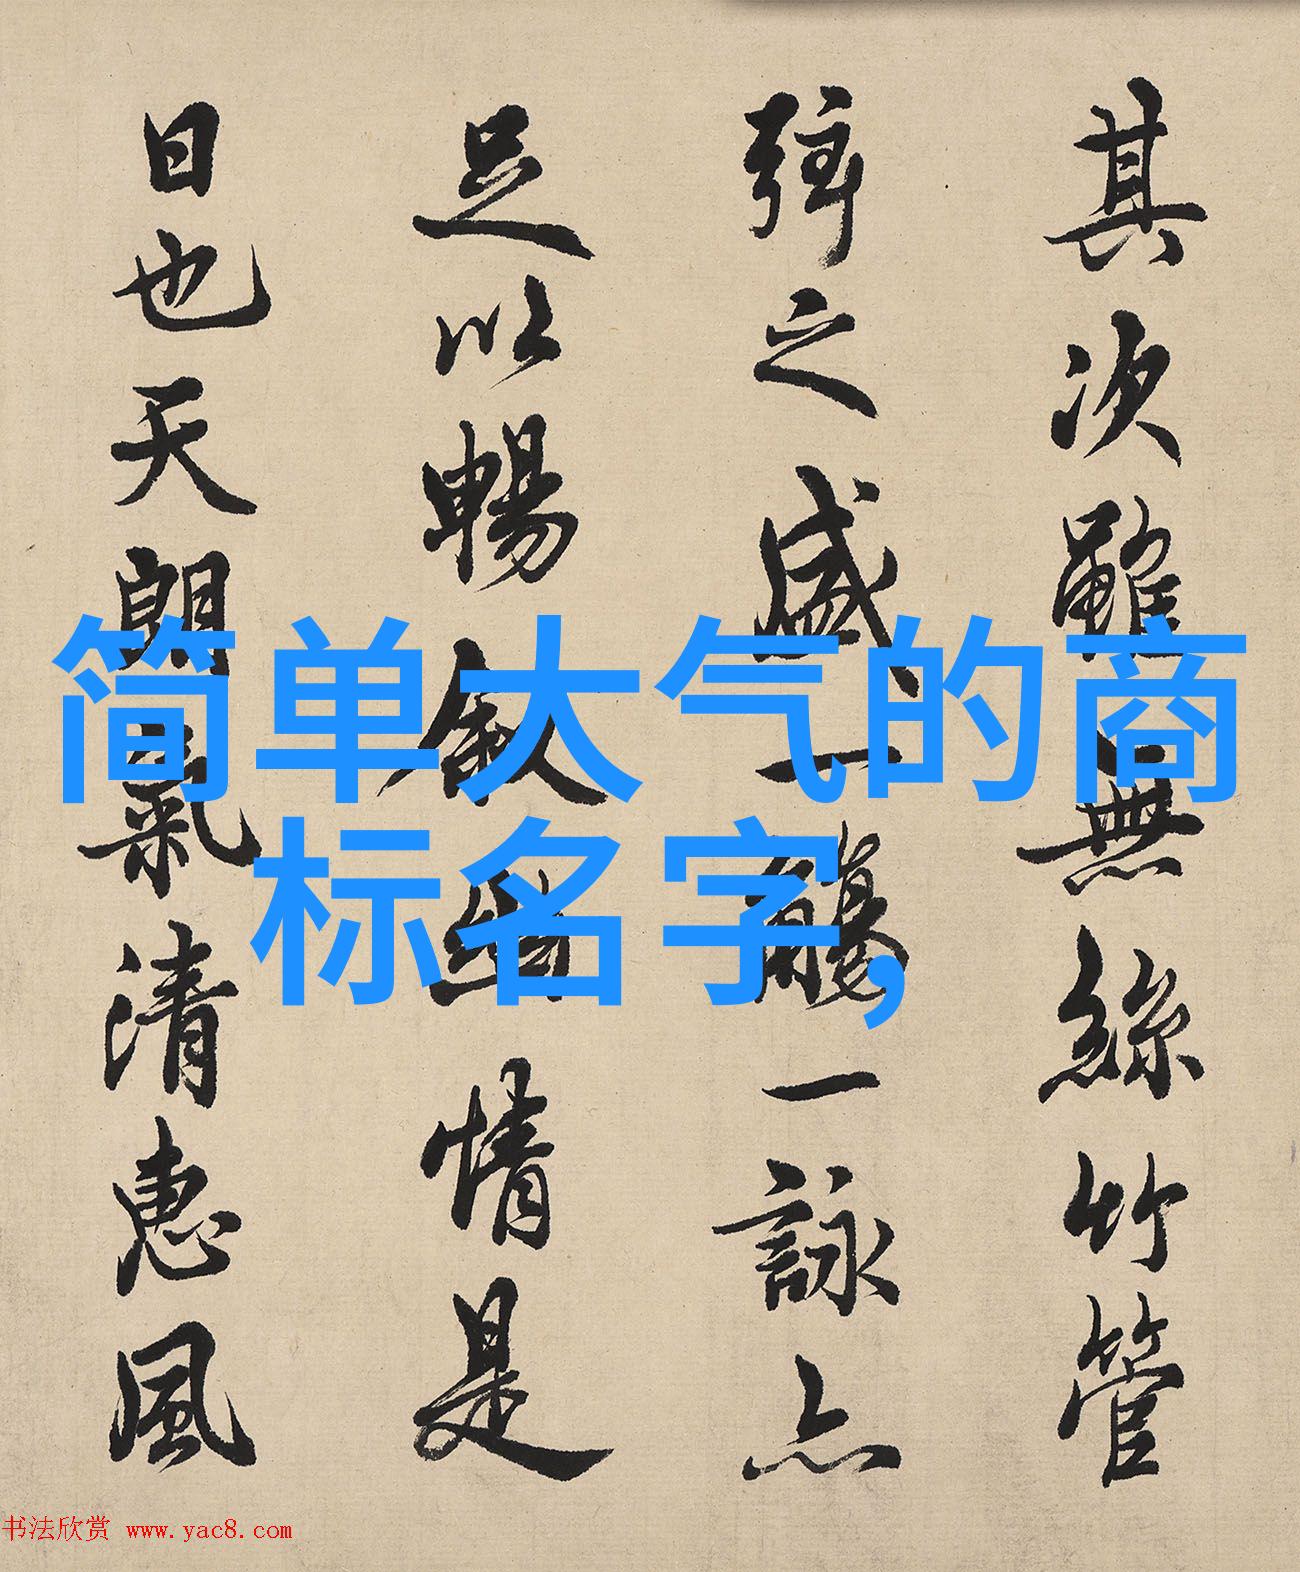 其次雖無絲竹管
弦之盛一觴一詠亦
足以暢叙幽情是
日也天朗氣清惠風
简单大气的商
标名字,
书法欣赏 www.yac8.com